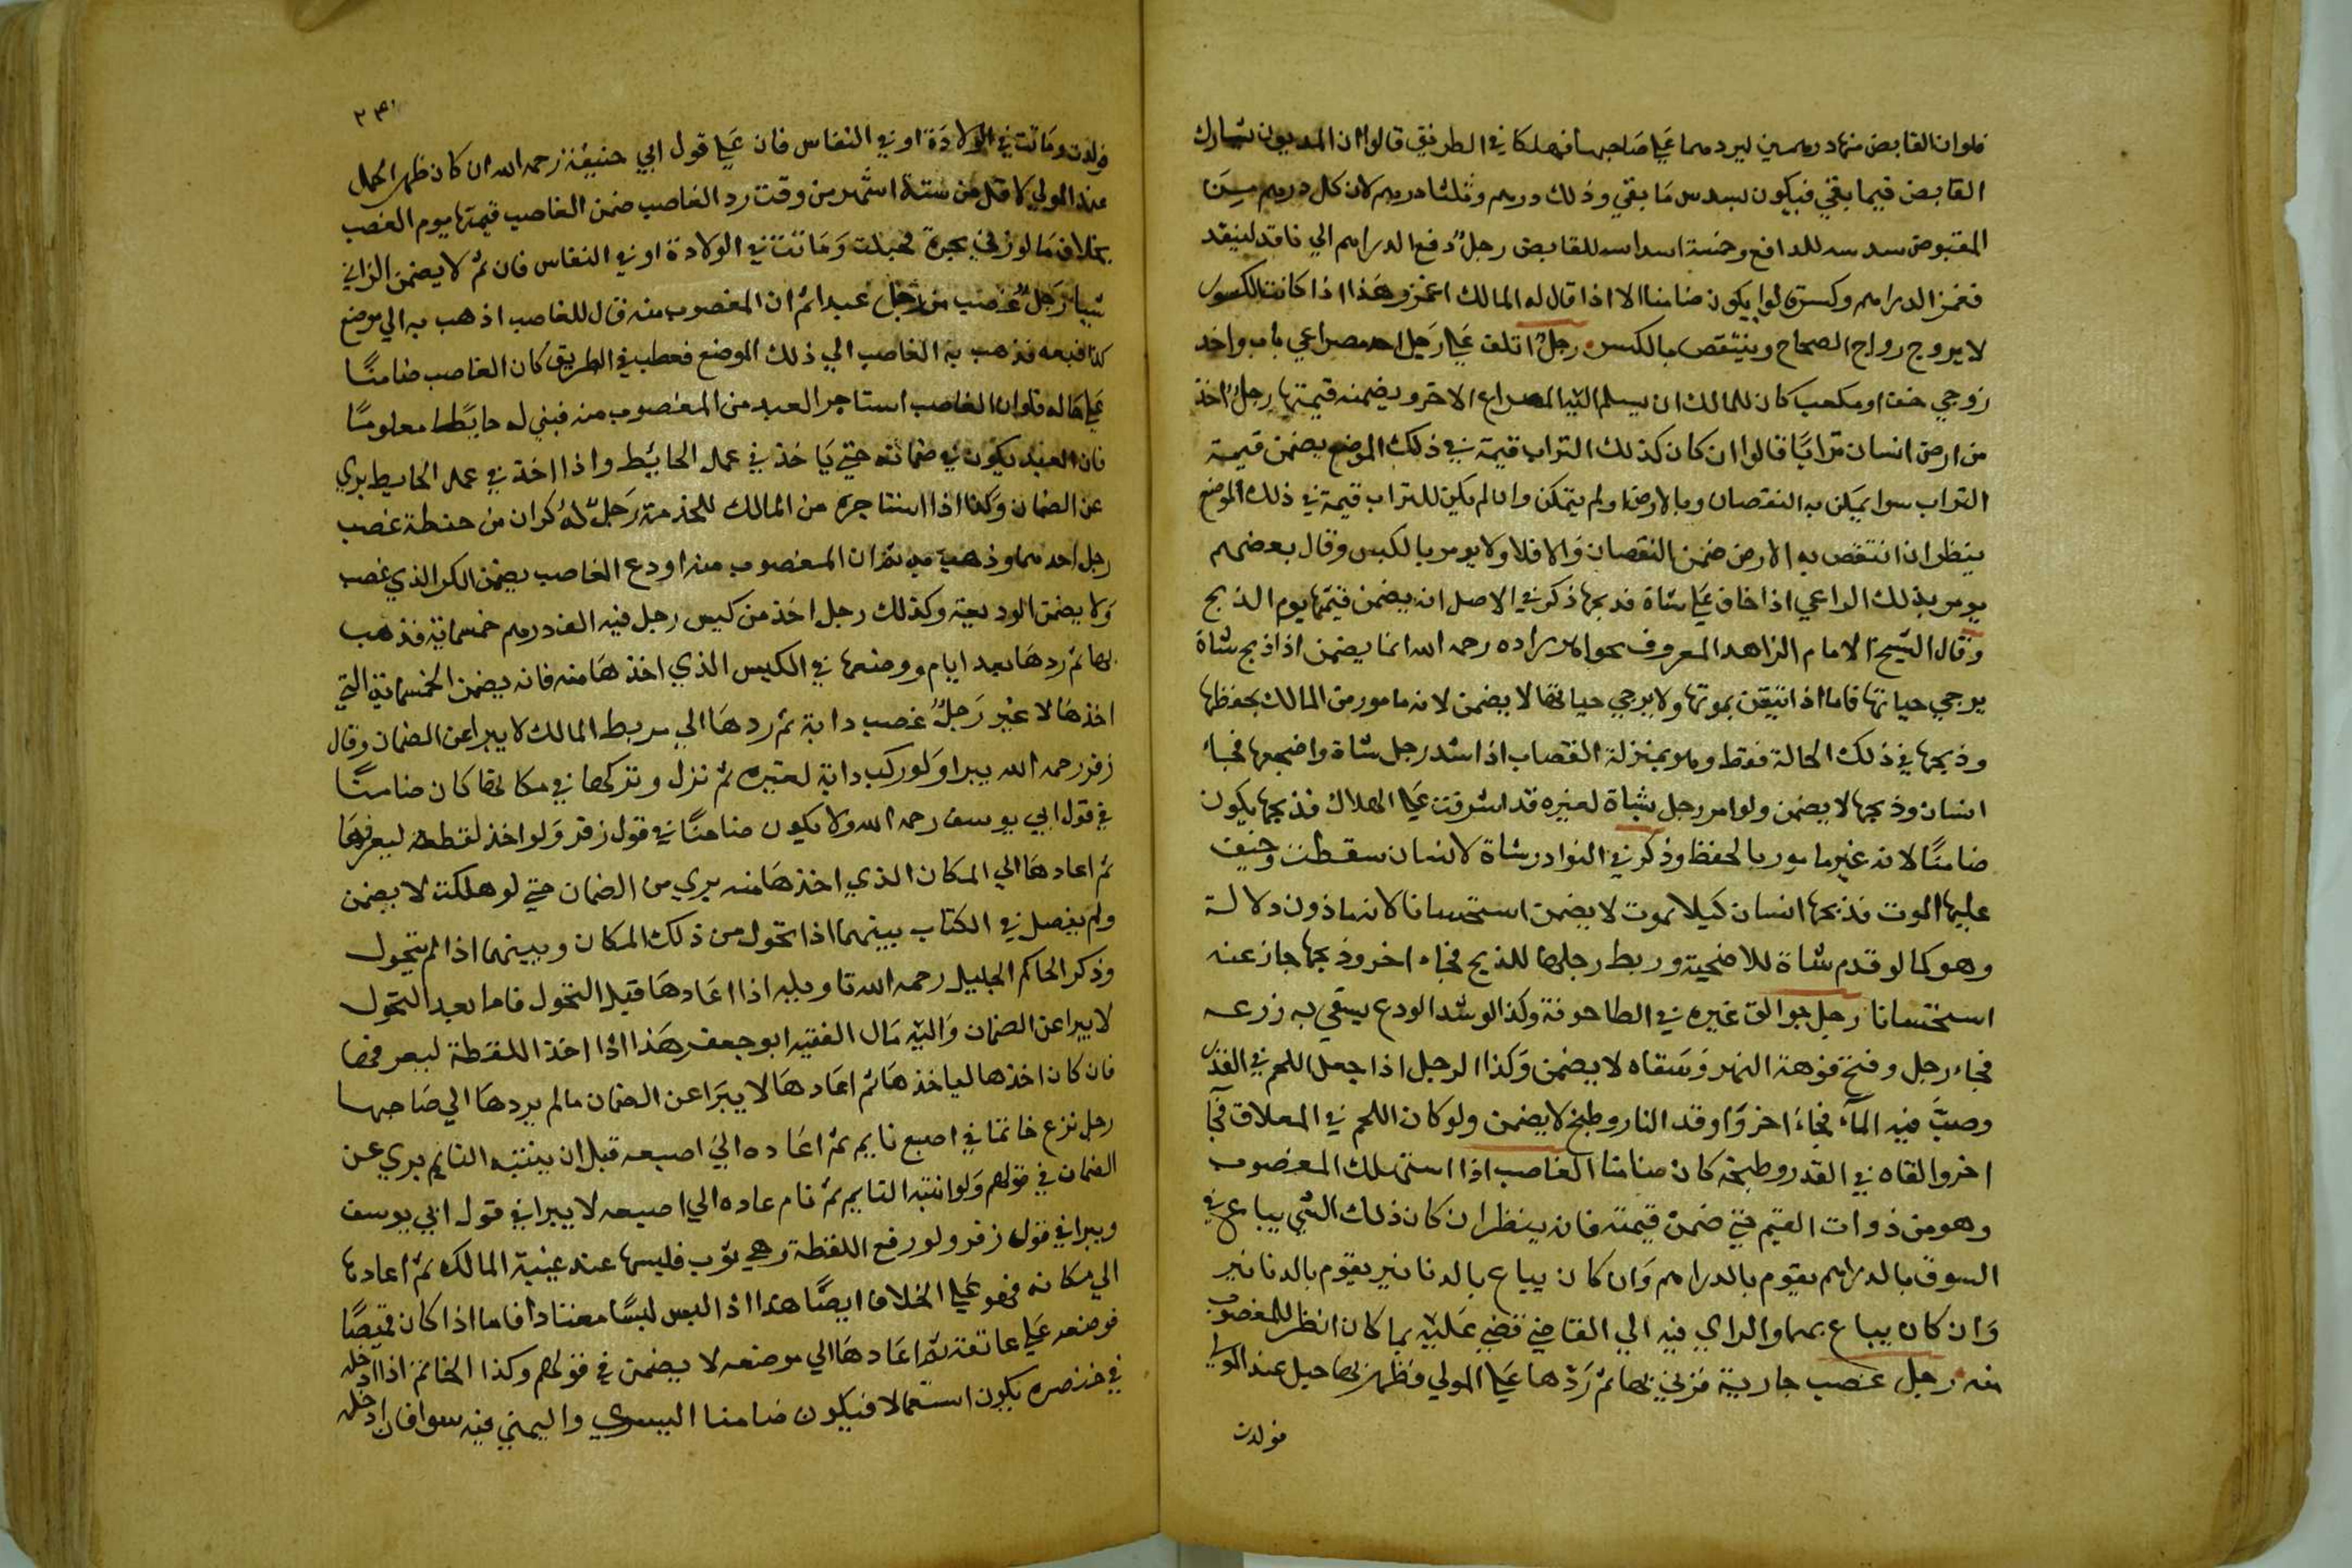 فلو ان القابض منهما درهمين ليردهما علي صاحبهما فهلكا في الطريق قالوا ان المديون شارك
القابض فيما بقي فيكون له سدس ما بقي وذلك درهم وثلثا درهم لان كل درهم من
المقبوض سدسه للدافع وخمسة اسداسه للقابض رجل دفع الدراهم الي ناقد لينقد
فغمز الدراهم وكسر قالوا يكون ضامنا الا اذا قال له المالك اغمز وهذا اذا كانت الكسور
لا يروج رواج الصحاح وينتقص بالكسر رجل اتلف علي رجل احد مصراعي باب واحد
زوجي خف او مكعب كان للمالك ان يسلم اليه المصراع الاخر ويضمنه قيمتها رجل اخذ
من ارض انسان ترابا قالوا ان كان لذلك التراب قيمة في ذلك الموضع يضمن قيمة
التراب سوا تمكن به النقصان وبالارض او لم يتمكن وان لم يكن للتراب قيمة في ذلك الموضع
ينظر ان انتقص به الارض ضمن النقصان والا فلا ولا يومر بالكبس وقال بعضهم
يومر بذلك الراعي اذا خاف علي شاة فذبحها ذكر في الاصل انه يضمن قيمتها يوم الذبح
وقال الشيخ الامام الزاهد المعروف بخواهر زاده رحمه الله انما يضمن اذا ذبح شاة
يرجي حياتها فاما اذا تيقن بموتها ولا يرجي حياتها لا يضمن لانه مامور من المالك بحفظها
وذبحها في ذلك الحالة فقط وهو بمنزلة القصاب اذا شد رجل شاة واضجعها فجاء
انسان وذبحها لا يضمن ولو امر رجل بشاة لغيره قد اشرفت علي الهلاك فذبحها يكون
ضامنا لانه غير مامور بالحفظ وذكر في النوادر شاة لانسان سقطت وخيف
عليها الموت فذبحها انسان كيلا يموت لا يضمن استحسانا لانه ماذون دلالة
وهو كما لو قدم شاة للاضحية وربط رجلها للذبح فجاء اخر وذبحها جاز عنه
استحسانا رجل جوالق غيره في الطاحونة وكذا لو شد الودع يسقي به زرعه
فجاء رجل وفتح فوهة النهر وسقاه لا يضمن وكذا الرجل اذا جعل اللحم في القدر
وصب فيه الماء فجاء اخر واوقد النار وطبخ لا يضمن ولو كان اللحم في المعلاق فجا
اخر والقاه في القدر وطبخه كان ضامنا الغاصب اذا استهلك المغصوب
وهو من ذوات القيم حتي ضمن قيمته فانه ينظر ان كان ذلك الشي يباع في
السوق بالدراهم يقوم بالدراهم وان كان يباع بالدنانير يقوم بالدنانير
وان كان يباع بهما والراي فيه الي القاضي قضي عليه بما كان انظر للمغصوب
منه رجل غصب جارية فزني بها ثم ردها علي المولي فظهر بها حبل عند المولي
فولدت
٢٣٠
فولدت وماتت في الولادة او في النفاس فان علي قول ابي حنيفة رحمه الله ان كان ظهر الحمل
عند المولي لاقل من ستة اشهر من وقت رد الغاصب ضمن الغاصب قيمتها يوم الغصب
بخلاف ما لو زني بحرة فحبلت وماتت في الولادة او في النفاس فان ثم لا يضمن الزاني
شيا رجل غصب من رجل عبدا ثم ان المغصوب منه قال للغاصب اذهب به الي موضع
كذا فبعه فذهب به الغاصب الي ذلك الموضع فعطب في الطريق كان الغاصب ضامنا
علي حاله فلو ان الغاصب استاجر العبد من المغصوب منه فبني له حايطا معلوما
فان العبد يكون في ضمانه حتي ياخذ في عمل الحايط واذا اخذ في عمل الحايط بري
عن الضمان وكذا اذا استاجره من المالك للخدمة رجل له كران من حنطة غصب
رجل احدهما وذهب به ثم ان المغصوب منه اودع الغاصب يضمن الكر الذي غصب
ولا يضمن الوديعة وكذلك رجل اخذ من كيس رجل فيه الف درهم خمسماية فذهب
بها ثم ردها بعد ايام ووضعها في الكيس الذي اخذها منه فانه يضمن الخمسماية التي
اخذها لا غير رجل غصب دابة ثم ردها الي مربط المالك لا يبرا عن الضمان وقال
زفر رحمه الله يبرا ولو ركب دابة لغيره ثم نزل وتركها في مكانها كان ضامنا
في قول ابي يوسف رحمه الله ولا يكون ضامنا في قول زفر ولو اخذ لقطة ليعرفها
ثم اعادها الي المكان الذي اخذها منه بري من الضمان حتي لو هلكت لا يضمن
ولم يفصل في الكتاب بينهما اذا تحول من ذلك المكان وبينهما اذا لم يتحول
وذكر الحاكم الجليل رحمه الله تاويله اذا اعادها قبل التحول فاما بعد التحول
لا يبرا عن الضمان واليه مال الفقيه ابو جعفر هذا اذا اخذ اللقطة ليعرفها
فان كان اخذها لياخذها ثم اعادها لا يبرا عن الضمان مالم يردها الي صاحبها
رجل نزع خاتما في اصبع نايم ثم اعاده الي اصبعه قبل ان ينتبه النايم بري عن
الضمان في قولهم ولو انتبه النايم ثم نام عاده الي اصبعه لا يبرا في قول ابي يوسف
ويبرا في قول زفر ولو رفع اللقطة وهي ثوب فلبسها عند غيبة المالك ثم اعادها
الي مكانه فهو علي الخلاف ايضا هذا اذا لبس لبسا معتادا فاما اذا كان قميصا
فوضعه علي عاتقه ثم اعادها الي موضعه لا يضمن في قولهم وكذا الخاتم اذا ادخله
في خنصره يكون استعمالا فيكون ضامنا اليسري واليمني فيه سوا فان ادخله